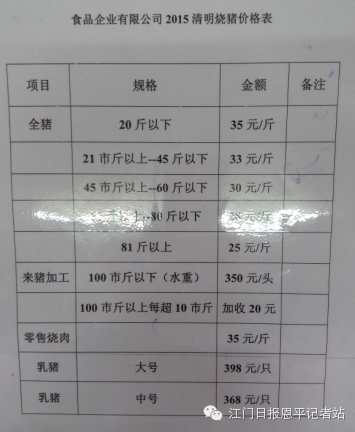 食品企业有限公司2015清明烧猪价格表
项目 规格 金额 备注
全猪 20斤以下 35元/斤
21市斤以上--45斤以下 33元/斤
45市斤以上--60斤以下 30元/斤
以上--80斤以下 元/斤
81斤以上 25元/斤
来猪加工 100市斤以下（水重） 350元/头
100市斤以上每超10市斤 加收20元
零售烧肉 35元/斤
乳猪 大号 398元/只
乳猪 中号 368元/只
江门日报恩平记者站